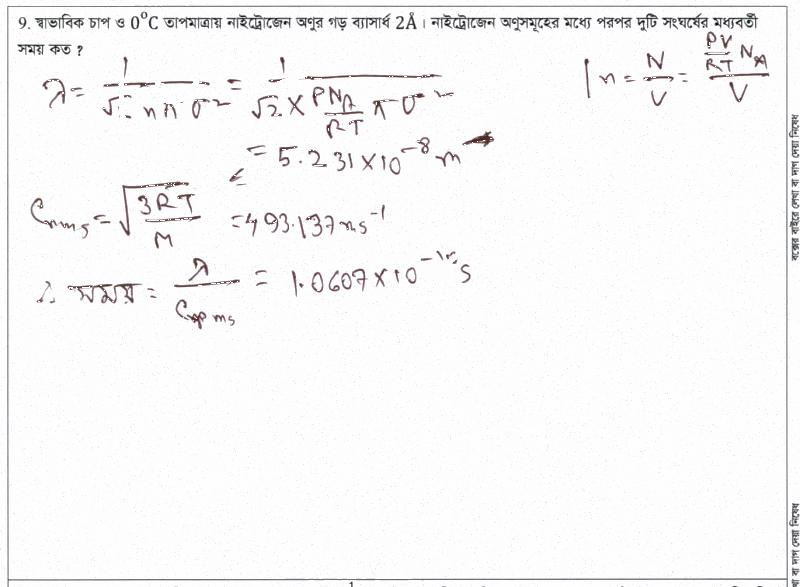 9. স্বাভাবিক চাপ ও 0°C তাপমাত্রায় নাইট্রোজেন অণুর গড় ব্যাসার্ধ 2Å। নাইট্রোজেন অণুসমূহের মধ্যে পরপর দুটি সংঘর্ষের মধ্যবর্তী
সময় কত ?
λ = 1/(√2 nπσ²) = 1/(√2 × (PN_A/RT) πσ²)
| n = N/V = ((PV/RT) N_A)/V
= 5.231×10⁻⁸ m
C_rms = √(3RT/M) = 493.137 ms⁻¹
∴ সময় = λ/C_rms = 1.0607×10⁻¹⁰ s
বক্সের বাইরে লেখা বা দাগ দেয়া নিষেধ
বা দাগ দেয়া নিষেধ
1